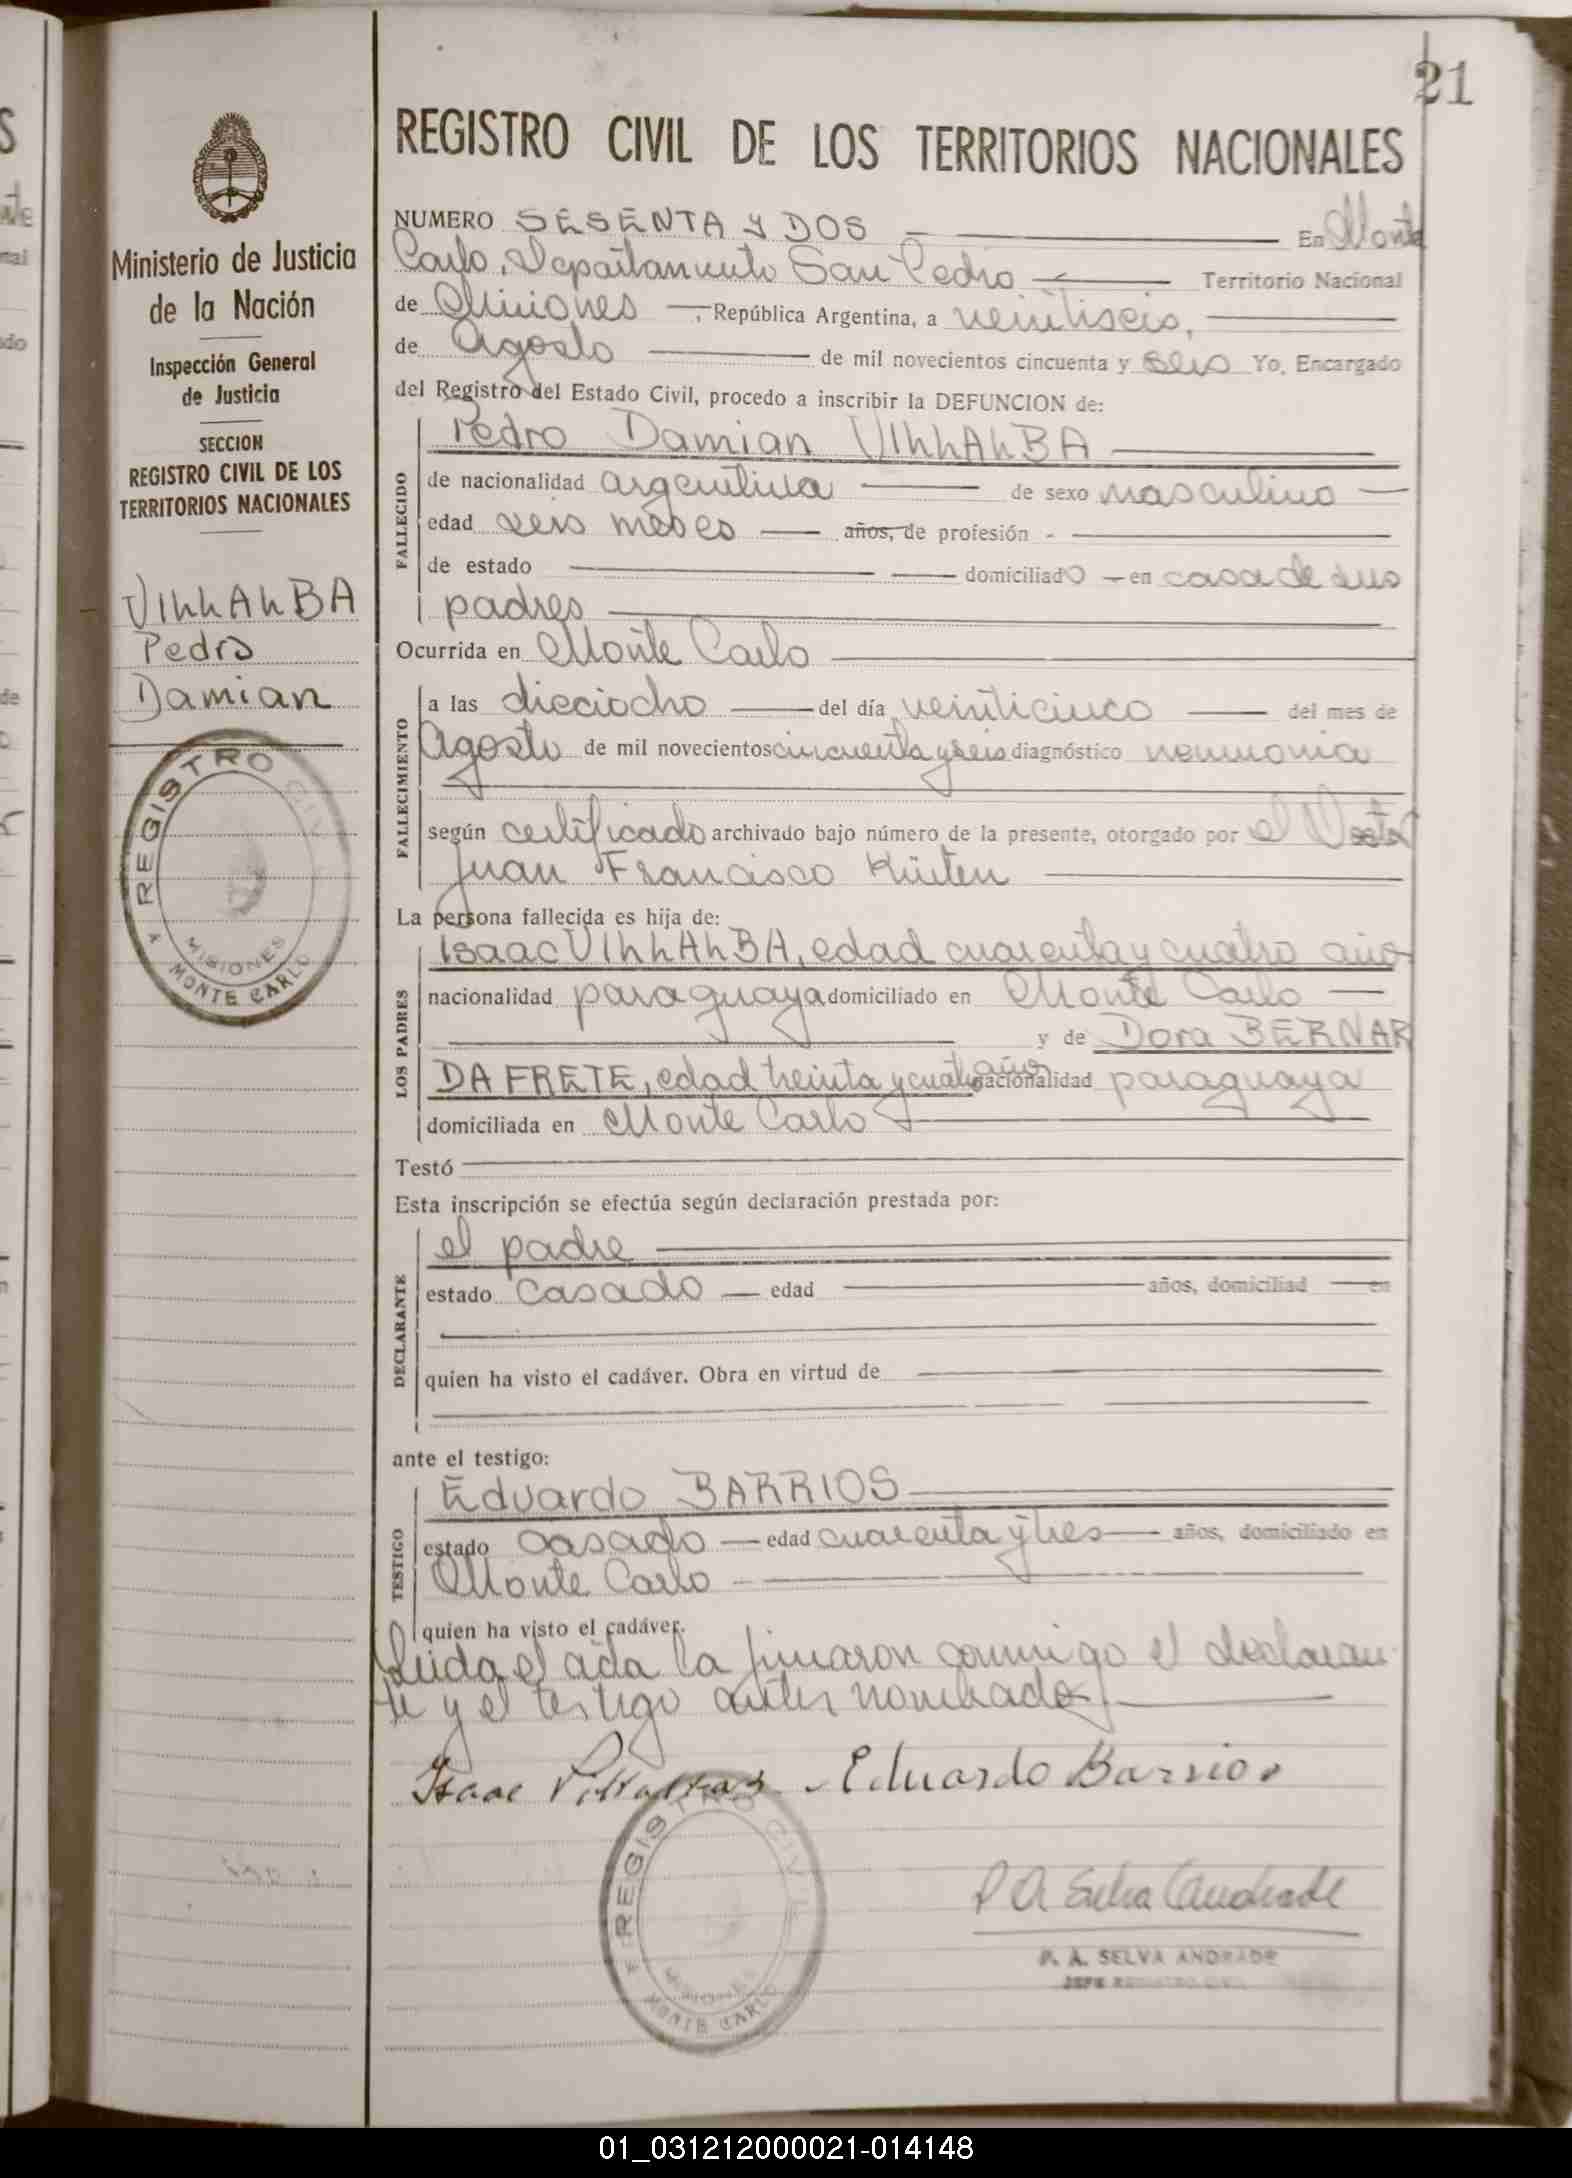 21
REGISTRO CIVIL DE LOS TERRITORIOS NACIONALES
Ministerio de Justicia
de la Nación
Inspección General
de Justicia
SECCION
REGISTRO CIVIL DE LOS
TERRITORIOS NACIONALES
VILLALBA
Pedro
Damian
REGISTRO CIVIL
MISIONES
MONTE CARLO
NUMERO SESENTA Y DOS En Monte
Carlo, Departamento San Pedro Territorio Nacional
de Misiones, República Argentina, a veintiseis,
de Agosto de mil novecientos cincuenta y seis Yo, Encargado
del Registro del Estado Civil, procedo a inscribir la DEFUNCION de:
FALLECIDO
Pedro Damian VILLALBA
de nacionalidad argentina de sexo masculino
edad seis meses años, de profesión -
de estado domiciliado en casa de sus
padres
Ocurrida en Monte Carlo
FALLECIMIENTO
a las dieciocho del día veinticinco del mes de
Agosto de mil novecientos cincuenta y seis diagnóstico neumonia
según certificado archivado bajo número de la presente, otorgado por el Doctor
Juan Francisco Küsten
La persona fallecida es hija de:
LOS PADRES
Isaac VILLALBA, edad cuarenta y cuatro años
nacionalidad paraguaya domiciliado en Monte Carlo
y de Dora BERNAR
DA FRETE, edad treinta y cuatro años nacionalidad paraguaya
domiciliada en Monte Carlo
Testó
Esta inscripción se efectúa según declaración prestada por:
DECLARANTE
el padre
estado casado edad años, domiciliad en
quien ha visto el cadáver. Obra en virtud de
ante el testigo:
TESTIGO
Eduardo BARRIOS
estado casado edad cuarenta y tres años, domiciliado en
Monte Carlo
quien ha visto el cadáver.
Leida el acta la firmaron conmigo el declaran-
te y el testigo antes nombrado
Isaac Villalba Eduardo Barrios
REGISTRO CIVIL
MISIONES
MONTE CARLO
P A Selva Andrade
P. A. SELVA ANDRADE
JEFE REGISTRO CIVIL
01_031212000021-014148